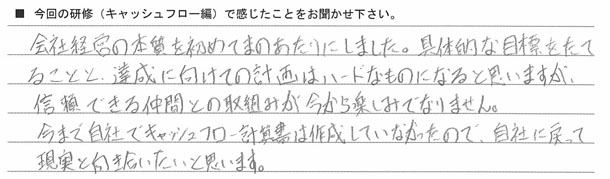 ■ 今回の研修（キャッシュフロー編）で感じたことをお聞かせ下さい。
会社経営の本質を初めてまのあたりにしました。具体的な目標をたて
ることと、達成に向けての計画はハードなものになると思いますが、
信頼できる仲間との取組みが今から楽しみでなりません。
今まで自社でキャッシュフロー計算書は作成していなかったので、自社に戻って
現実と向き合いたいと思います。